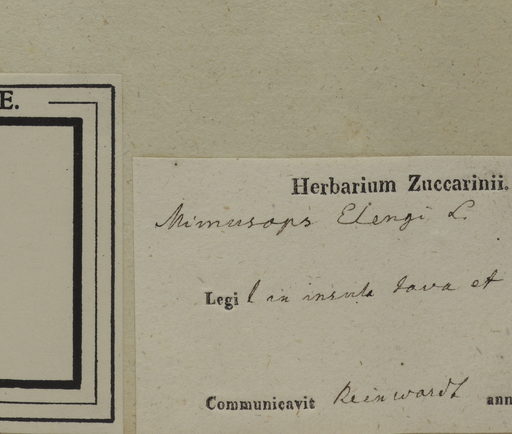 E.
Herbarium Zuccarinii.
Mimusops Elengi L.
Legi l in insula Java et
Communicavit Reinwardt ann